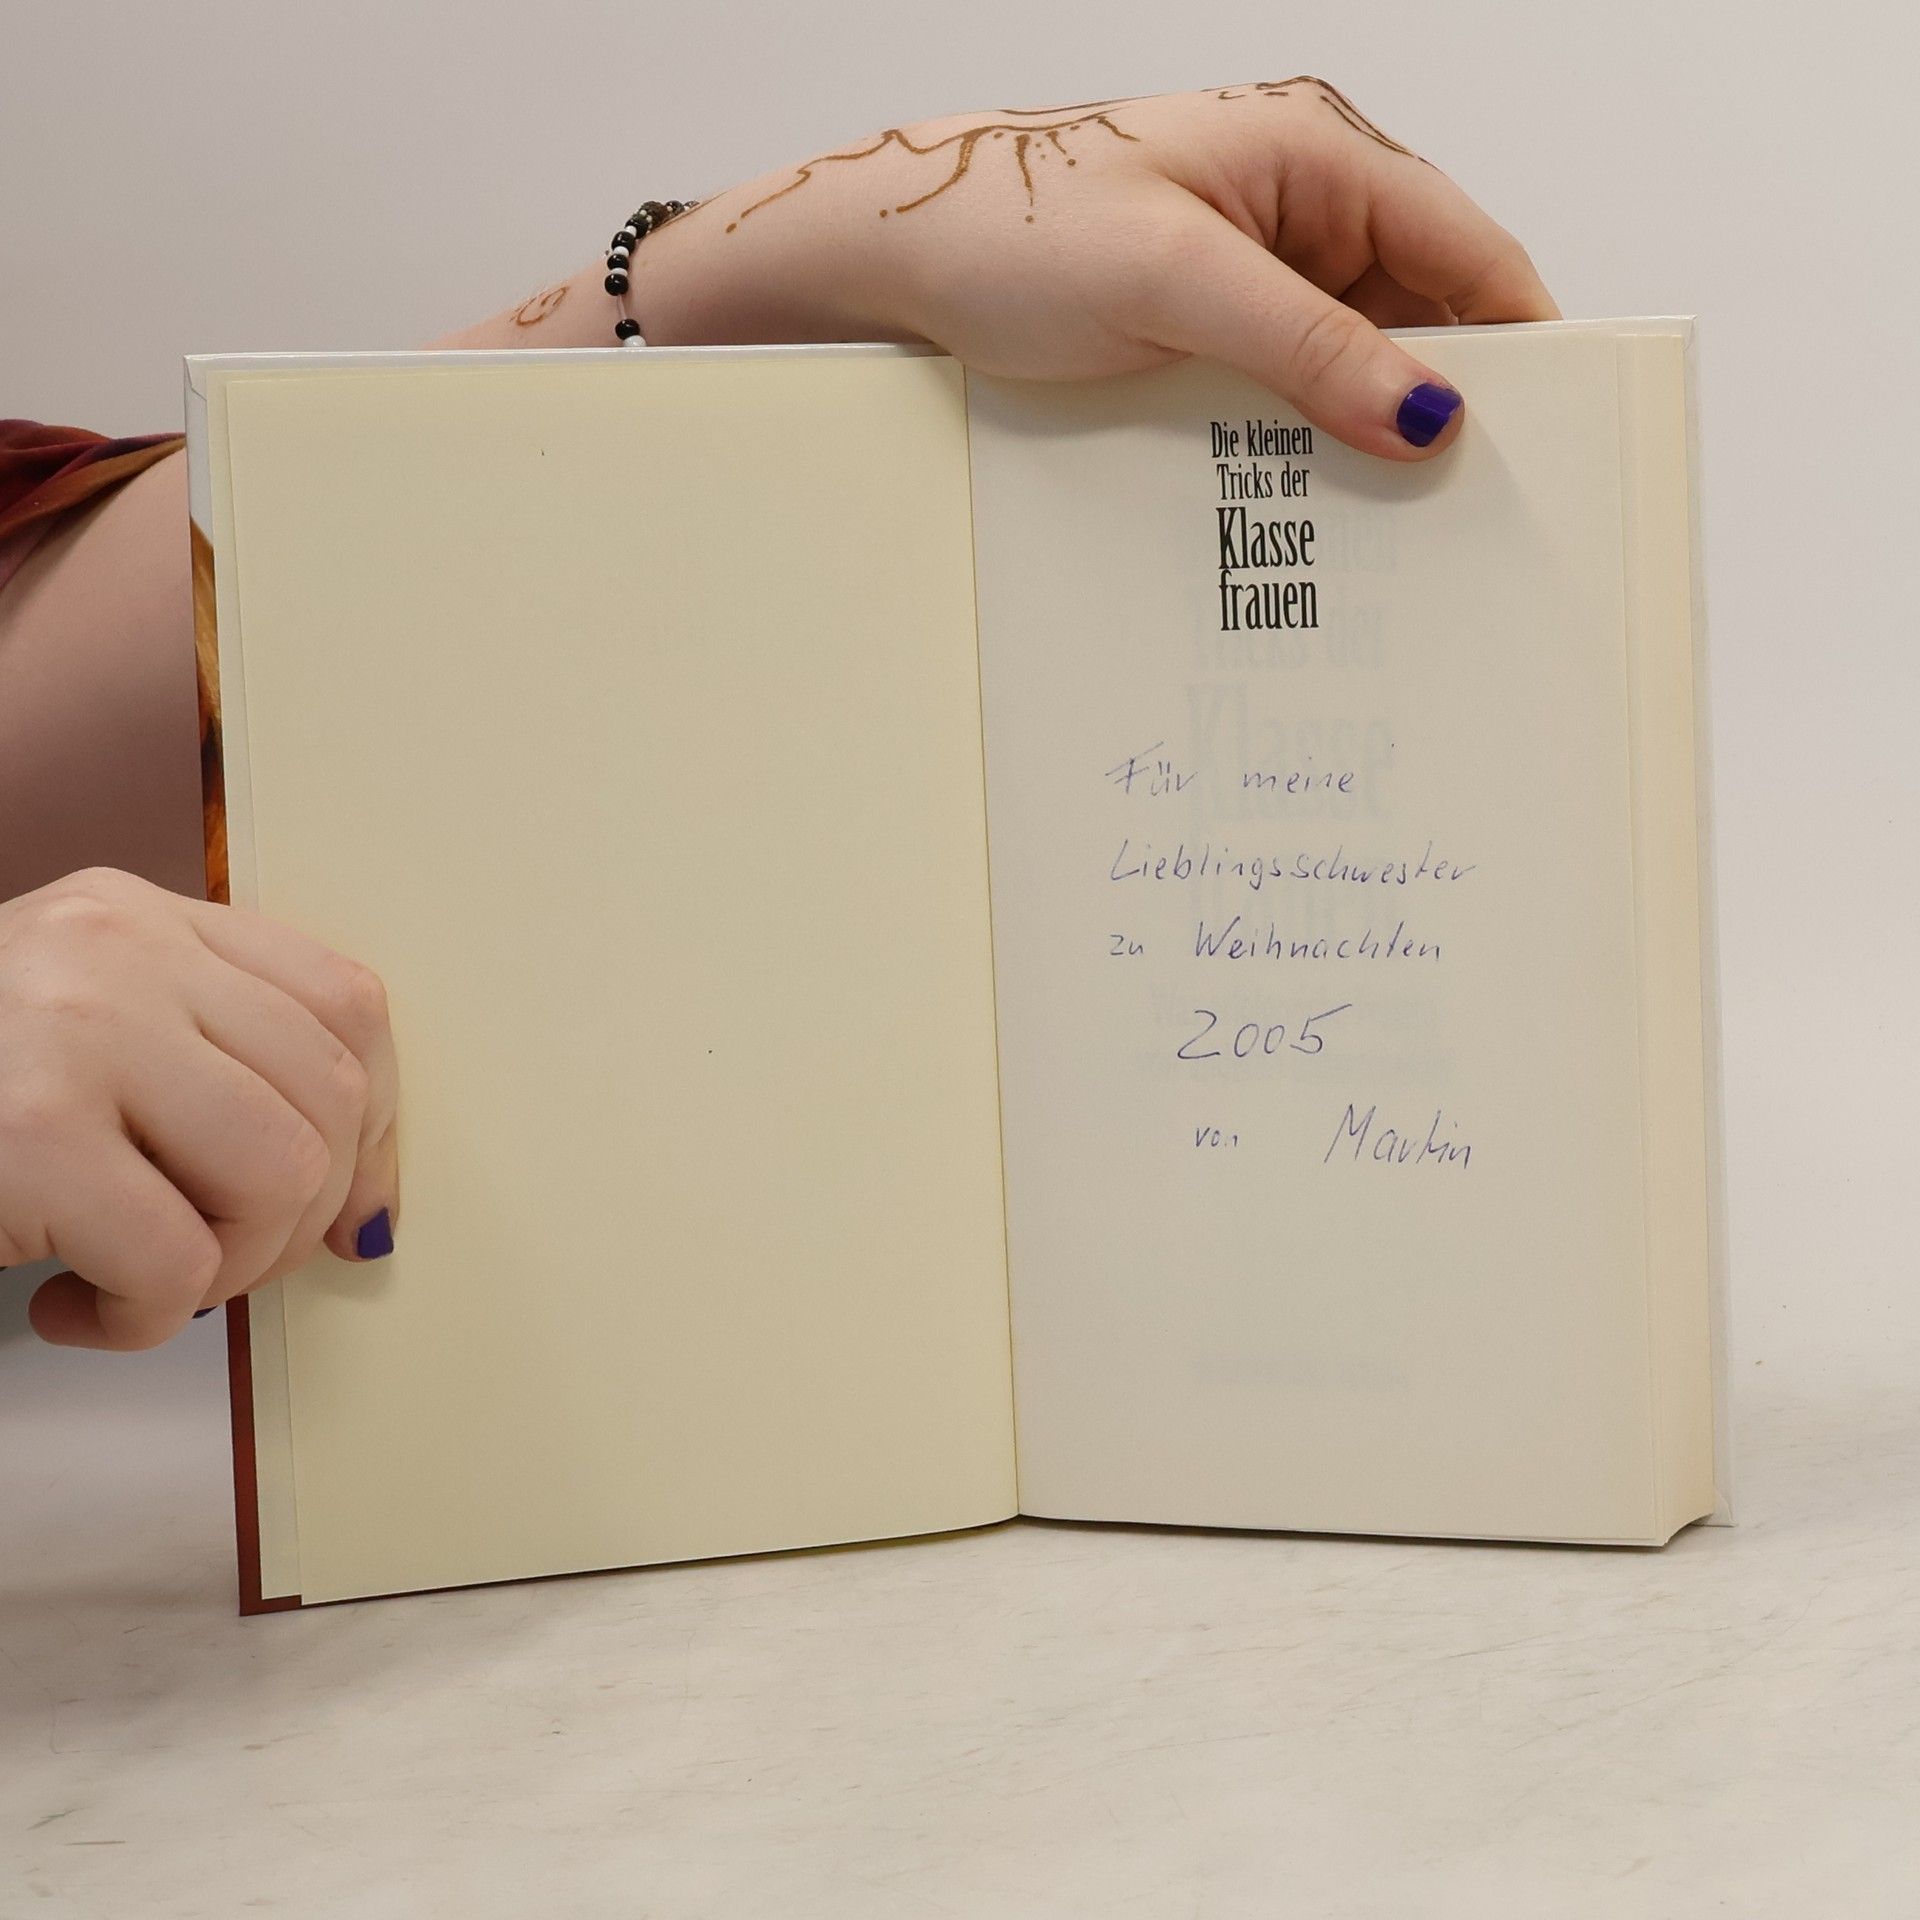 Die kleinen
Tricks der
Klasse
frauen
Für meine
Lieblingsschwester
zu Weihnachten
2005
von Martin